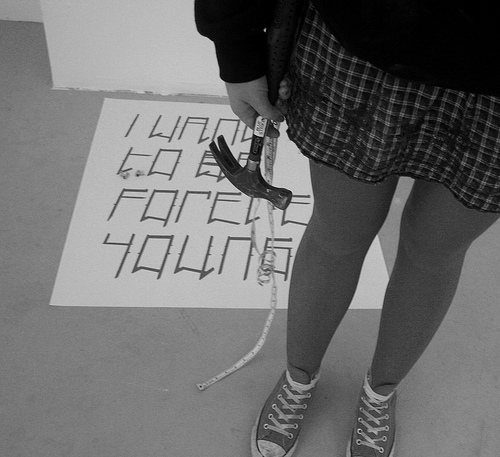 I WANN
TO BE
FORE E
YOUNG